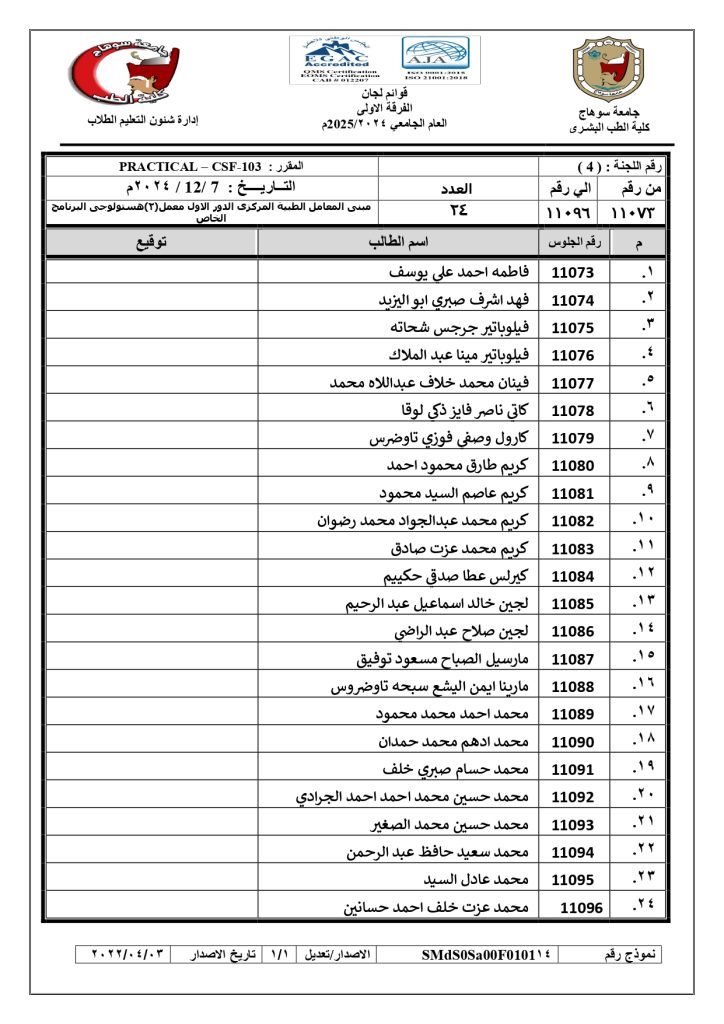 جامعة سوهاج
كلية الطب
إدارة شئون التعليم الطلاب
المجلس الوطني للاعتماد
EGAC
Accredited
QMS Certification
EOMS Certification
CAB # 012207
AJA
ISO 9001:2015
ISO 21001:2018
قوائم لجان
الفرقة الاولى
العام الجامعي ٢٠٢٤/2025م
جامعة سوهاج
كلية الطب البشرى
رقم اللجنة : ( 4 )
المقرر : PRACTICAL – CSF-103
من رقم الي رقم العدد التــاريــــخ : 7 /12 / ٢٠٢٤م
١١٠٧٣ ١١٠٩٦ ٢٤ مبنى المعامل الطبية المركزى الدور الاول معمل(٢)هستولوجى البرنامج
الخاص
م رقم الجلوس اسم الطالب توقيع
١. 11073 فاطمه احمد علي يوسف
٢. 11074 فهد اشرف صبري ابو اليزيد
٣. 11075 فيلوباتير جرجس شحاته
٤. 11076 فيلوباتير مينا عبد الملاك
٥. 11077 فينان محمد خلاف عبداللاه محمد
٦. 11078 كاتي ناصر فايز ذكي لوقا
٧. 11079 كارول وصفي فوزي تاوضرس
٨. 11080 كريم طارق محمود احمد
٩. 11081 كريم عاصم السيد محمود
١٠. 11082 كريم محمد عبدالجواد محمد رضوان
١١. 11083 كريم محمد عزت صادق
١٢. 11084 كيرلس عطا صدقي حكييم
١٣. 11085 لجين خالد اسماعيل عبد الرحيم
١٤. 11086 لجين صلاح عبد الراضي
١٥. 11087 مارسيل الصباح مسعود توفيق
١٦. 11088 مارينا ايمن اليشع سبحه تاوضروس
١٧. 11089 محمد احمد محمد محمود
١٨. 11090 محمد ادهم محمد حمدان
١٩. 11091 محمد حسام صبري خلف
٢٠. 11092 محمد حسين محمد احمد احمد الجرادي
٢١. 11093 محمد حسين محمد الصغير
٢٢. 11094 محمد سعيد حافظ عبد الرحمن
٢٣. 11095 محمد عادل السيد
٢٤. 11096 محمد عزت خلف احمد حسانين
نموذج رقم SMdS0Sa00F0101١٤ الاصدار/تعديل ١/١ تاريخ الاصدار ٢٠٢٢/٠٤/٠٣